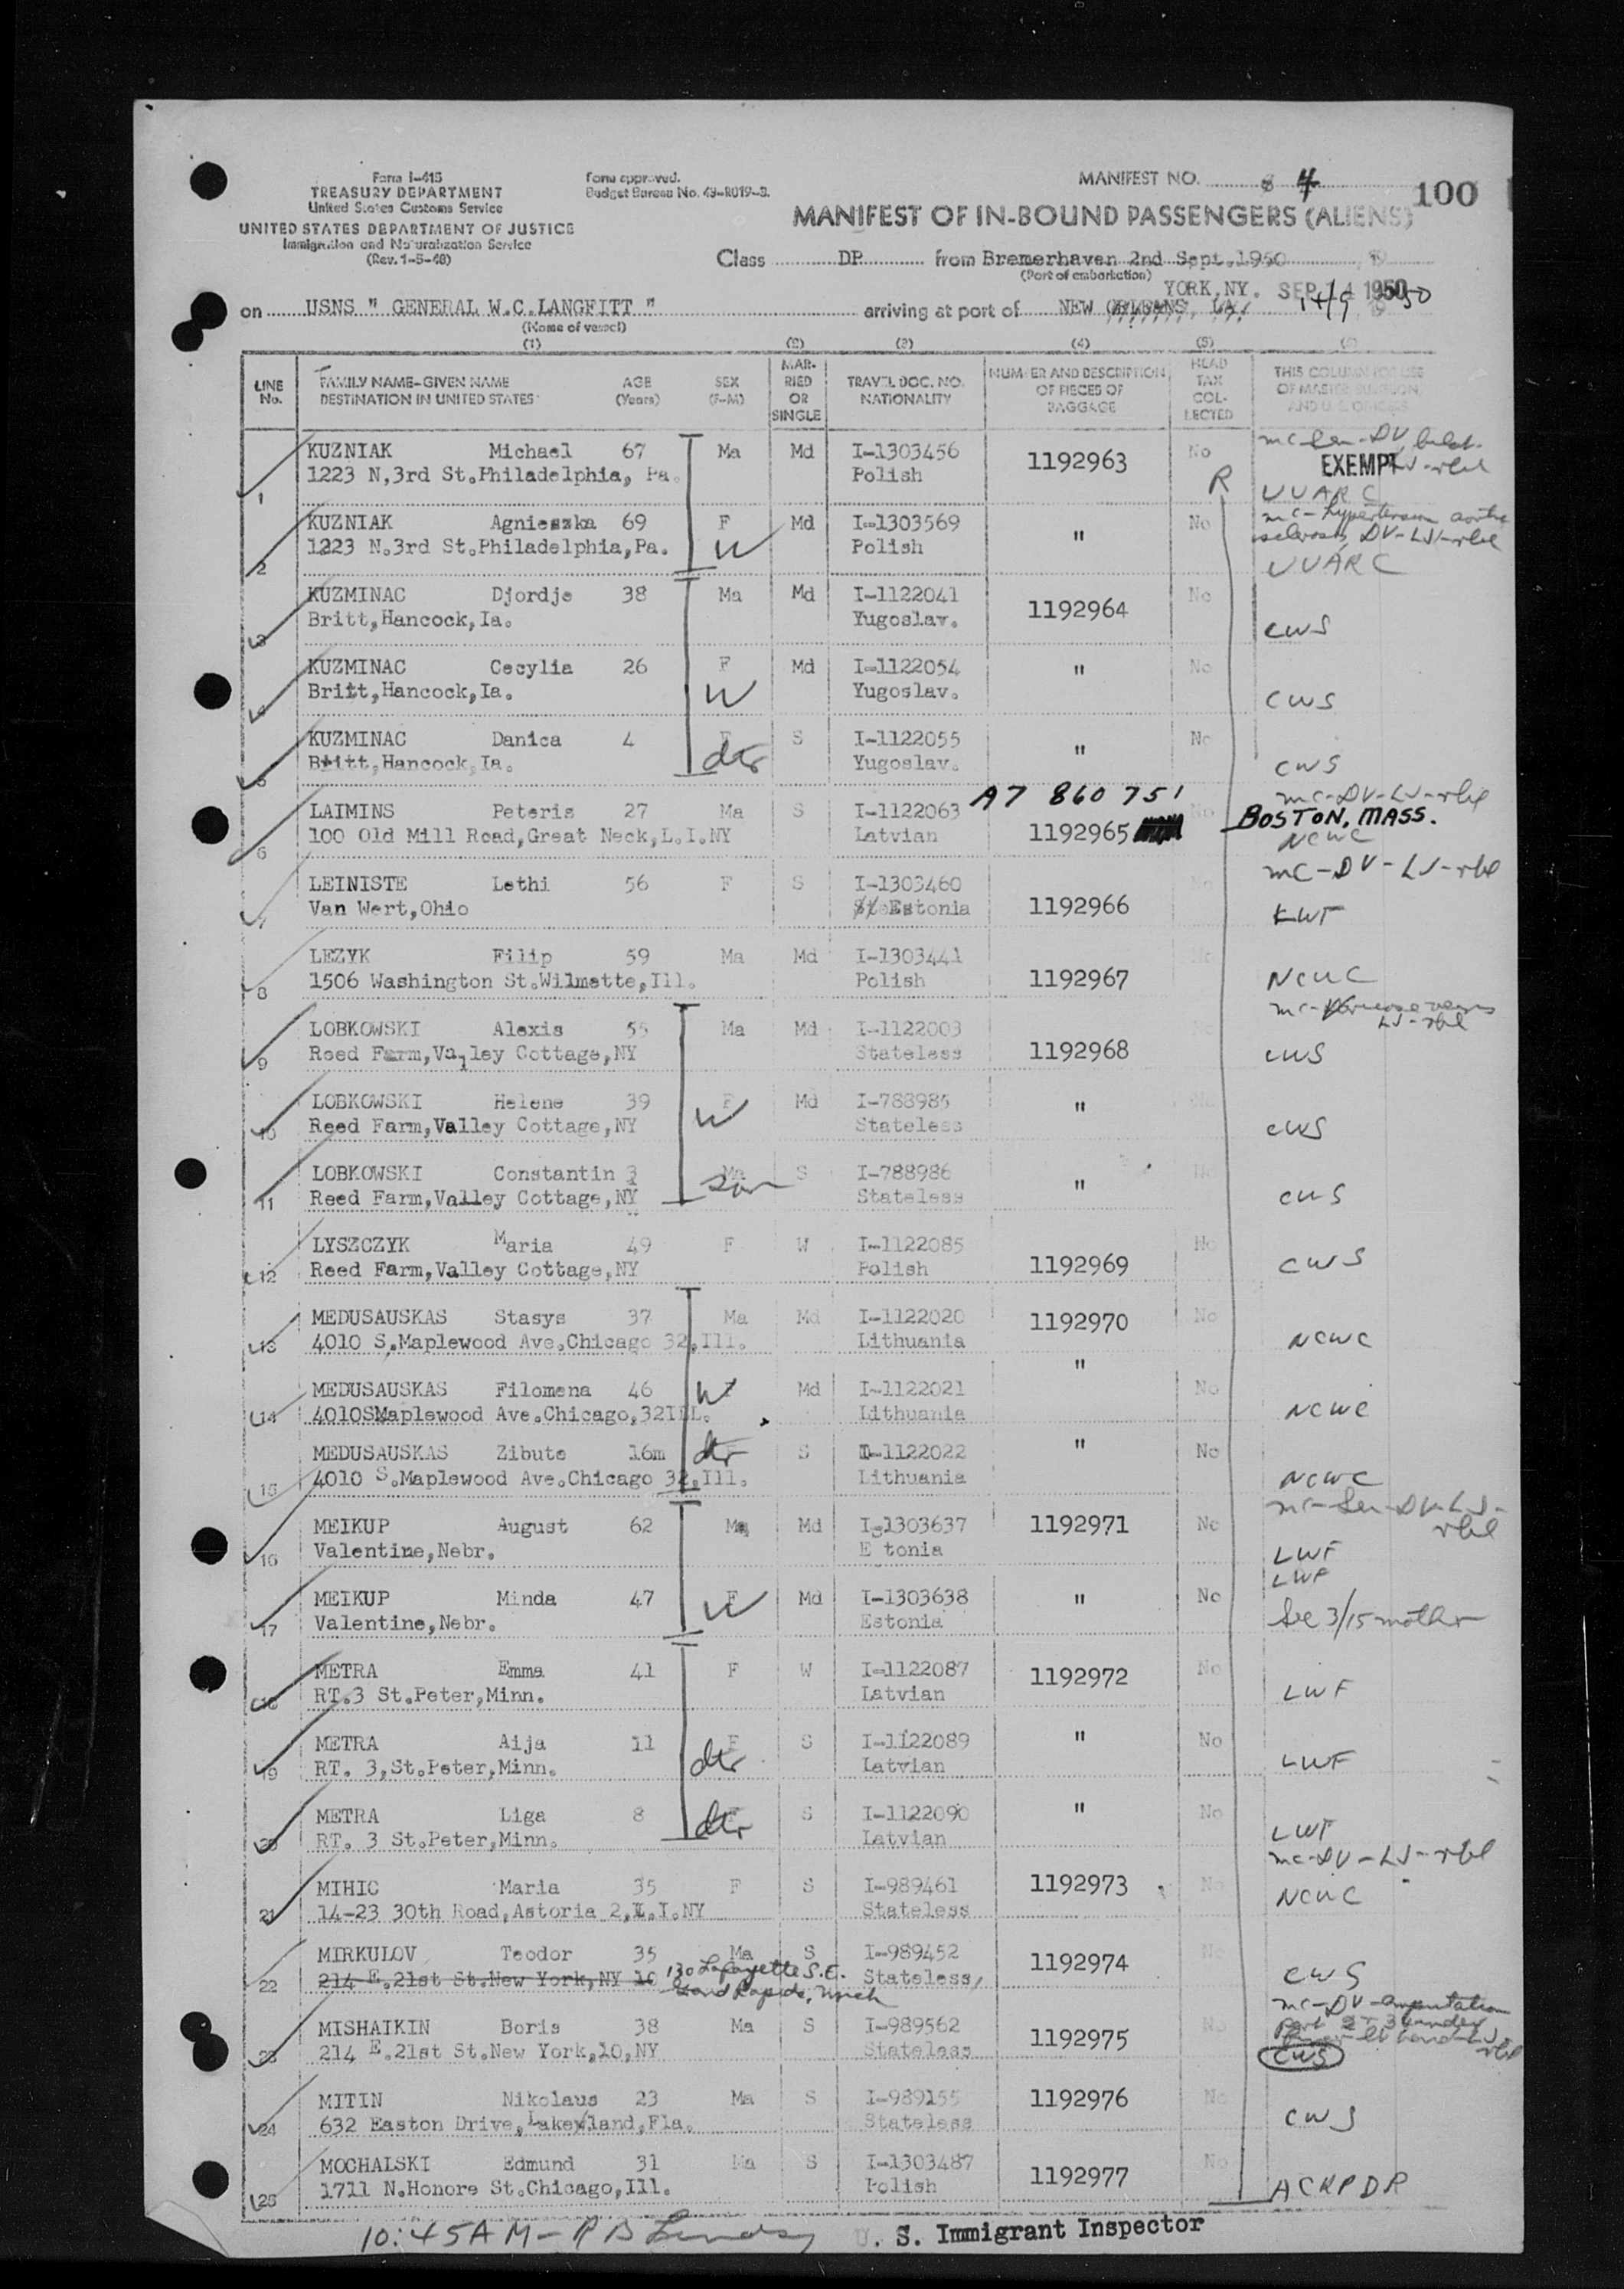 Form I-415
TREASURY DEPARTMENT
United States Customs Service
UNITED STATES DEPARTMENT OF JUSTICE
Immigration and Naturalization Service
(Rev. 1-5-48)
Form approved.
Budget Bureau No. 43-R019-3.
MANIFEST NO. 4
100
MANIFEST OF IN-BOUND PASSENGERS (ALIENS)
Class DP from Bremerhaven 2nd Sept.1950 19
(Port of embarkation)
YORK, NY. SEP 14 1950
on USNS " GENERAL W.C.LANGFITT " arriving at port of NEW ORLEANS, LA. 14/9 1950
(Name of vessel)
(1) (2) (3) (4) (5) (6)
LINE No. FAMILY NAME-GIVEN NAME DESTINATION IN UNITED STATES AGE (Years) SEX (F-M) MARRIED OR SINGLE TRAVEL DOC. NO. NATIONALITY NUMBER AND DESCRIPTION OF PIECES OF BAGGAGE HEAD TAX COLLECTED THIS COLUMN FOR USE OF MASTER, SURGEON, AND U. S. OFFICERS
1 KUZNIAK Michael 67 Ma Md I-1303456 1192963 No mc-Sen-DV
1223 N,3rd St.Philadelphia, Pa. Polish R EXEMPT LJ-rbl
UUARC
2 KUZNIAK Agnieszka 69 F W Md I-1303569 " No mc-hypertension aortic
1223 N.3rd St.Philadelphia,Pa. Polish sclerosis, DV-LJ-rbl
UUARC
3 KUZMINAC Djordje 38 Ma Md I-1122041 1192964 No
Britt,Hancock,Ia. Yugoslav. CWS
4 KUZMINAC Cecylia 26 F W Md I-1122054 " No
Britt,Hancock,Ia. Yugoslav. CWS
5 KUZMINAC Danica 4 F dtr S I-1122055 " No
Britt,Hancock,Ia. Yugoslav. CWS
A7 860 751 mc-DV-LJ-rbl
6 LAIMINS Peteris 27 Ma S I-1122063 1192965 No BOSTON, MASS.
100 Old Mill Road,Great Neck,L.I.NY Latvian NCWC
mc-DV-LJ-rbl
7 LEINISTE Lethi 56 F S I-1303460 1192966
Van Wert,Ohio Estonia LWF
8 LEZYK Filip 59 Ma Md I-1303441 1192967
1506 Washington St.Wilmette,Ill. Polish NCWC
mc-Varicose veins
LJ-rbl
9 LOBKOWSKI Alexis 55 Ma Md I-1122003 1192968
Reed Farm,Valley Cottage,NY Stateless CWS
10 LOBKOWSKI Helene 39 F W Md I-788985 "
Reed Farm,Valley Cottage,NY Stateless CWS
11 LOBKOWSKI Constantin 3 Ma son S I-788986 " No
Reed Farm,Valley Cottage,NY Stateless CWS
12 LYSZCZYK Maria 49 F W I-1122085 1192969 No
Reed Farm,Valley Cottage,NY Polish CWS
13 MEDUSAUSKAS Stasys 37 Ma Md I-1122020 1192970 No
4010 S.Maplewood Ave.Chicago 32,Ill. Lithuania NCWC
14 MEDUSAUSKAS Filomena 46 W Md I-1122021 " No
4010SMaplewood Ave.Chicago,32ILL. Lithuania NCWC
15 MEDUSAUSKAS Zibute 16m dtr S I-1122022 " No
4010 S.Maplewood Ave.Chicago 32,Ill. Lithuania NCWC
mc-Sen-DV-LJ-
rbl
16 MEIKUP August 62 Ma Md I-1303637 1192971 No
Valentine,Nebr. Estonia LWF
LWF
17 MEIKUP Minda 47 F W Md I-1303638 " No
Valentine,Nebr. Estonia See 3/15 mother
18 METRA Emma 41 F W I-1122087 1192972 No
RT.3 St.Peter,Minn. Latvian LWF
19 METRA Aija 11 F dtr S I-1122089 " No
RT. 3,St.Peter,Minn. Latvian LWF
20 METRA Liga 8 dtr S I-1122090 " No
RT. 3 St.Peter,Minn. Latvian LWF
mc-DV-LJ-rbl
21 MIHIC Maria 35 F S I-989461 1192973 No
14-23 30th Road,Astoria 2,L.I.NY Stateless NCWC
22 MIRKULOV Teodor 35 Ma S I-989452 1192974 No
214 E.21st St.New York,NY 10 130 Lafayette S.E. Stateless CWS
Grand Rapids, Mich
mc-DV-amputation
23 MISHAIKIN Boris 38 Ma S I-989562 1192975 No
214 E.21st St.New York,10,NY Stateless CWS
24 MITIN Nikolaus 23 Ma S I-989155 1192976 No
632 Easton Drive,Lakeland,Fla. Stateless CWS
25 MOCHALSKI Edmund 31 Ma S I-1303487 1192977 No
1711 N.Honore St.Chicago,Ill. Polish ACRPDR
10:45AM - R B
U. S. Immigrant Inspector